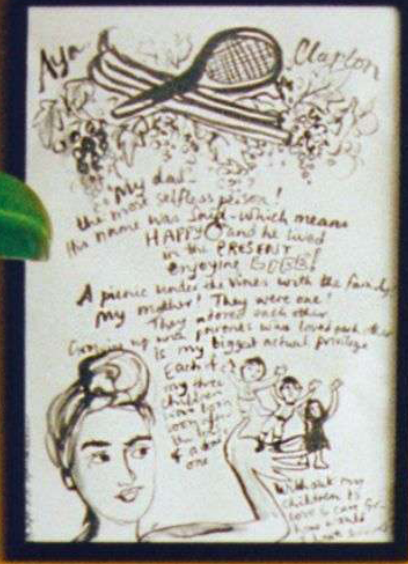 Aya Clapton
My dad
the most selfless person!
His name was Said - which means
HAPPY and he lived
in the PRESENT
enjoying LIFE!
A picnic under the vines with the family.
My mother! They were one!
They adored each other
Growing up were parents who loved each other
is my biggest actual privilege
Each of
my three
children
can
the
& a
one
Without my
children to
love & care for
how would
I